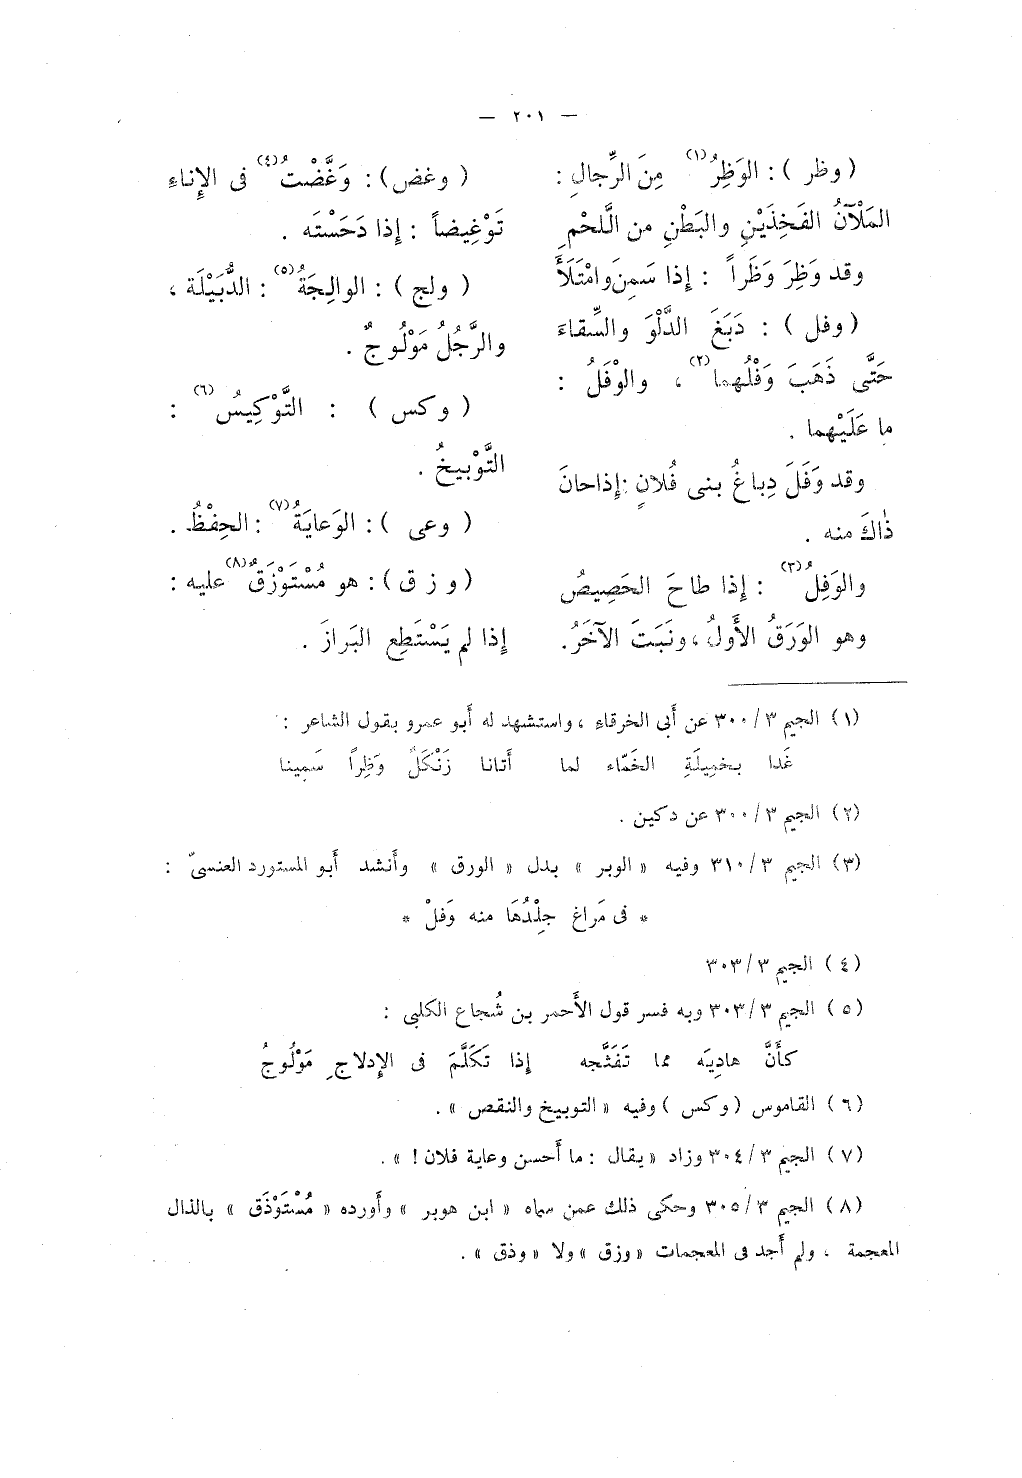 — ٢٠١ —
( وظر ) : الوَظِرُ(١) مِنَ الرِّجالِ :
المَلْآنُ الفَخِذَيْنِ والبَطْنِ من اللَّحْمِ
وقد وَظِرَ وَظَراً : إِذا سَمِنَ وامْتَلَأَ
( وفل ) : دَبَغَ الدَّلْوَ والسِّقاءَ
حَتَّى ذَهَبَ وَفْلُهما(٢) ، والوْفَلُ :
ما عَلَيْهما .
وقد وَفَلَ دِباغُ بنى فُلانٍ : إِذا حانَ
ذٰاكَ منه .
والوَفِلُ(٣) : إِذا طاحَ الحَصِيصُ
وهو الوَرَقُ الأَولُ ، ونَبَتَ الآخَرُ.
( وغض ) : وَغَّضْتُ(٤) فى الإِناءِ
تَوْغِيضاً : إِذا دَحَسْتَه .
( ولج ) : الوالِجَةُ(٥) : الدُّبَيْلَة ،
والرَّجُلُ مَوْلُوجٌ .
( وكس ) : التَّوْكِيسُ(٦) :
التَّوْبيخُ .
( وعى ) : الوَعايَةُ(٧) : الحِفْظُ .
( و ز ق ) : هو مُسْتَوْزَقٌ(٨) عليه :
إِذا لم يَسْتَطِع البَرازَ .
(١) الجيم ٣٠٠/٣ عن أَبى الخرقاء ، واستشهد له أَبو عمرو بقول الشاعر :
غَدا بخمِيلَةِ الخَمّاء لما أَتانا زَنْكَلٌ وَظِراً سَمِينا
(٢) الجيم ٣٠٠/٣ عن دكين .
(٣) الجيم ٣١٠/٣ وفيه « الوبر » بدل « الورق » وأَنشد أَبو المستورد العنسىّ :
* فى مَراغ جِلْدُهَا منه وَفلْ *
( ٤ ) الجيم ٣٠٣/٣
( ٥ ) الجيم ٣٠٣/٣ وبه فسر قول الأَحمر بن شُجاع الكلبى :
كأَنَّ هادِيَه مما تَفَثَّجه إِذا تَكَلَّمَ فى الإِدلاجِ مَوْلُوجُ
( ٦ ) القاموس ( وكس ) وفيه « التوبيخ والنقص » .
(٧) الجيم ٣٠٤/٣ وزاد « يقال : ما أَحسن وعاية فلان ! » .
( ٨ ) الجيم ٣٠٥/٣ وحكى ذلك عمن سماه « ابن هوبر » وأَورده « مُسْتَوْذَق » بالذال
المعجمة ، ولم أَجد فى المعجمات « وزق » ولا « وذق » .